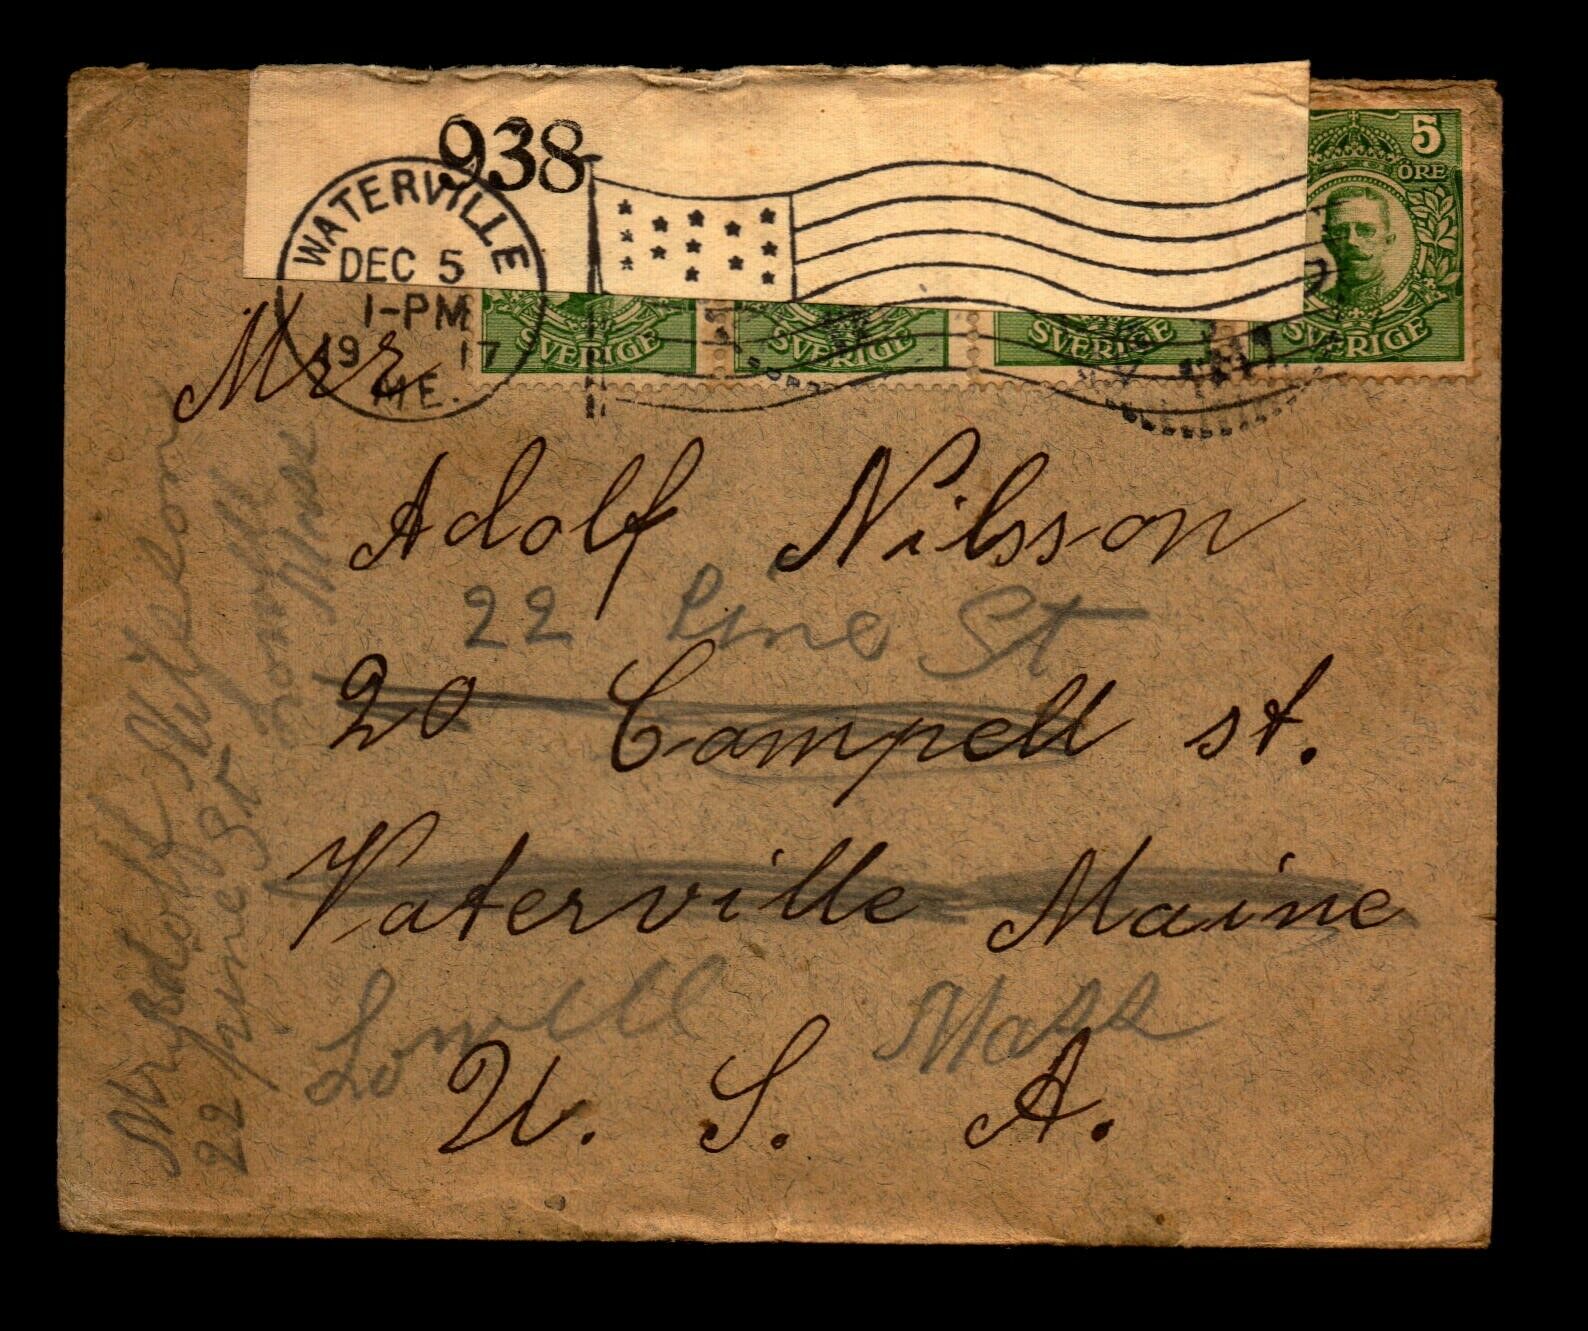 938
WATERVILLE
DEC 5
1-PM
19 17
ME.
5
ÖRE
SVERIGE
SVERIGE
SVERIGE
SVERIGE
Mr
Adolf Nilsson
22 Pine St
20 Campell st.
Vaterville Maine
Lowell Mass
U. S. A.
Mr Adolf Nilsson
22 pine St
Lowell
Mass